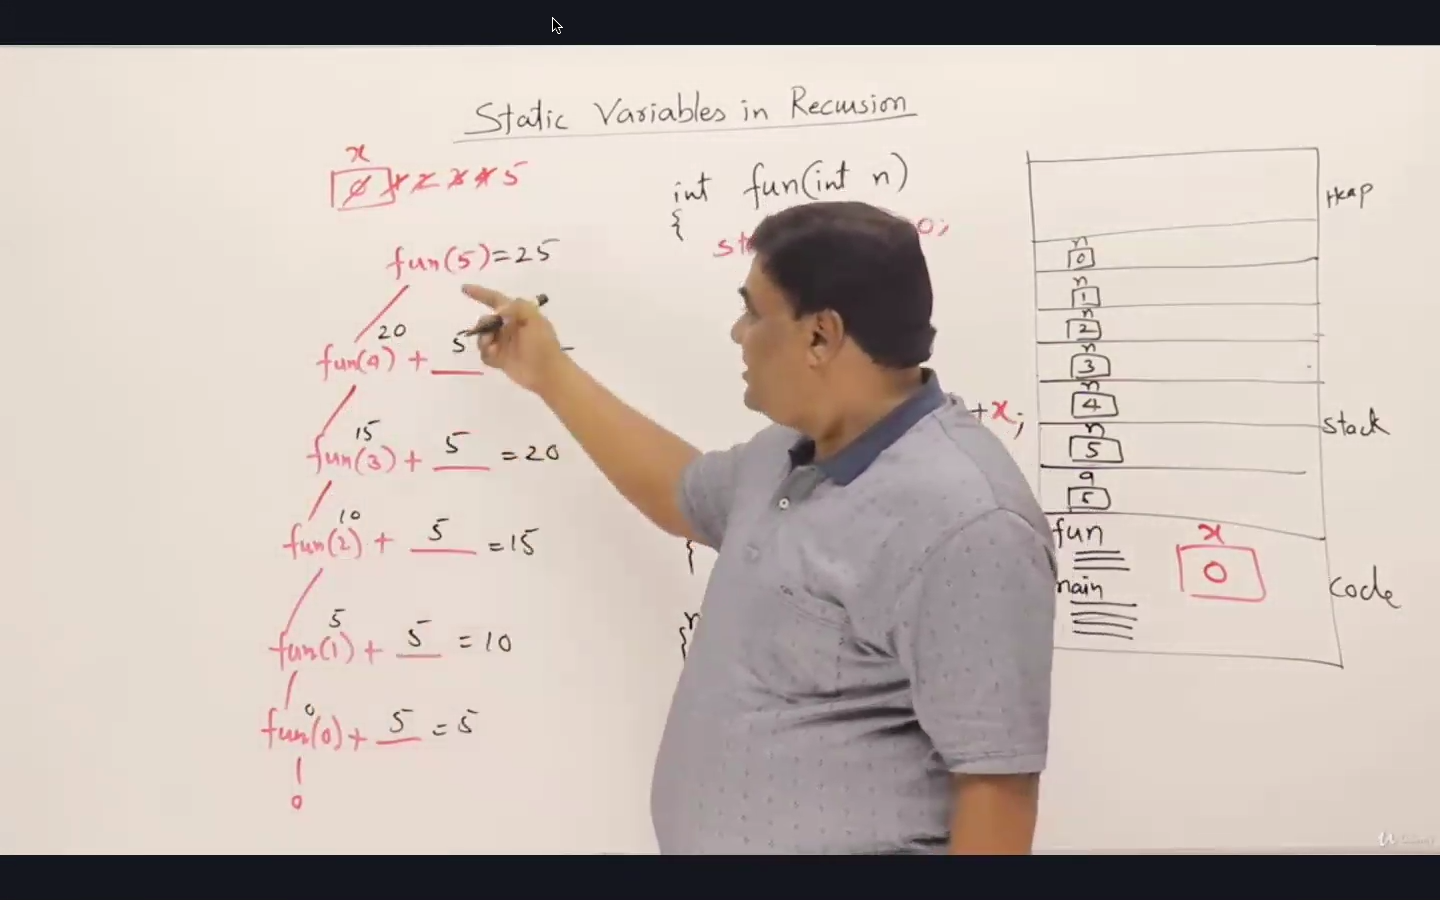 Static Variables in Recursion
x
0 1 2 3 4 5
fun(5)=25
20
fun(4) + 5
15
fun(3) + 5 = 20
10
fun(2) + 5 = 15
5
fun(1) + 5 = 10
0
fun(0) + 5 = 5
0
int fun(int n)
{
0;
+x;
Heap
n
0
n
1
n
2
n
3
n
4
n
5
a
5
stack
fun
main
x
0
code